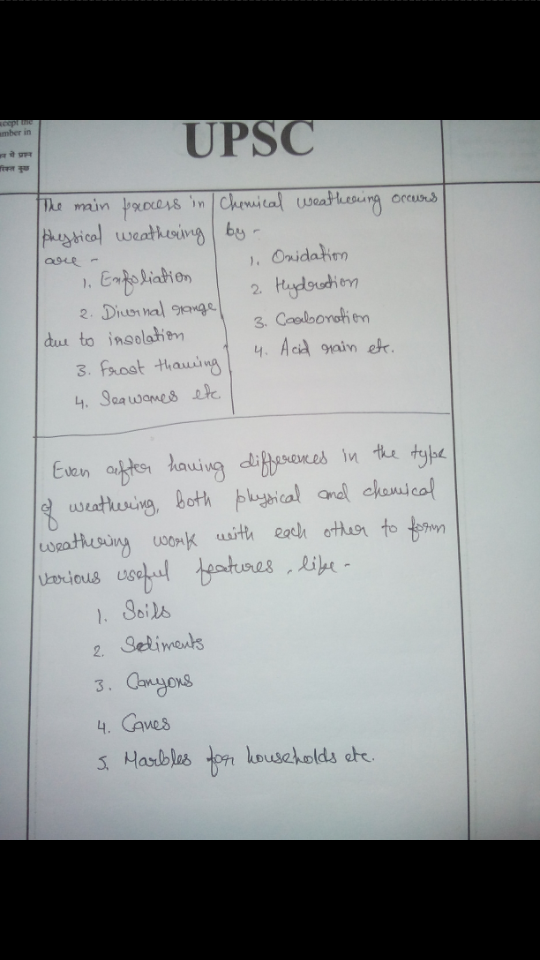 cept the
umber in
UPSC
The main process in
physical weathering
are -
1. Exfoliation
2. Diurnal range
due to insolation
3. Frost thawing
4. Seawaves etc
Chemical weathering occurs
by -
1. Oxidation
2. Hydration
3. Carbonation
4. Acid rain etc.
Even after having differences in the type
of weathering, both physical and chemical
weathering work with each other to form
various useful features, like -
1. Soils
2. Sediments
3. Canyons
4. Caves
5. Marbles for households etc.